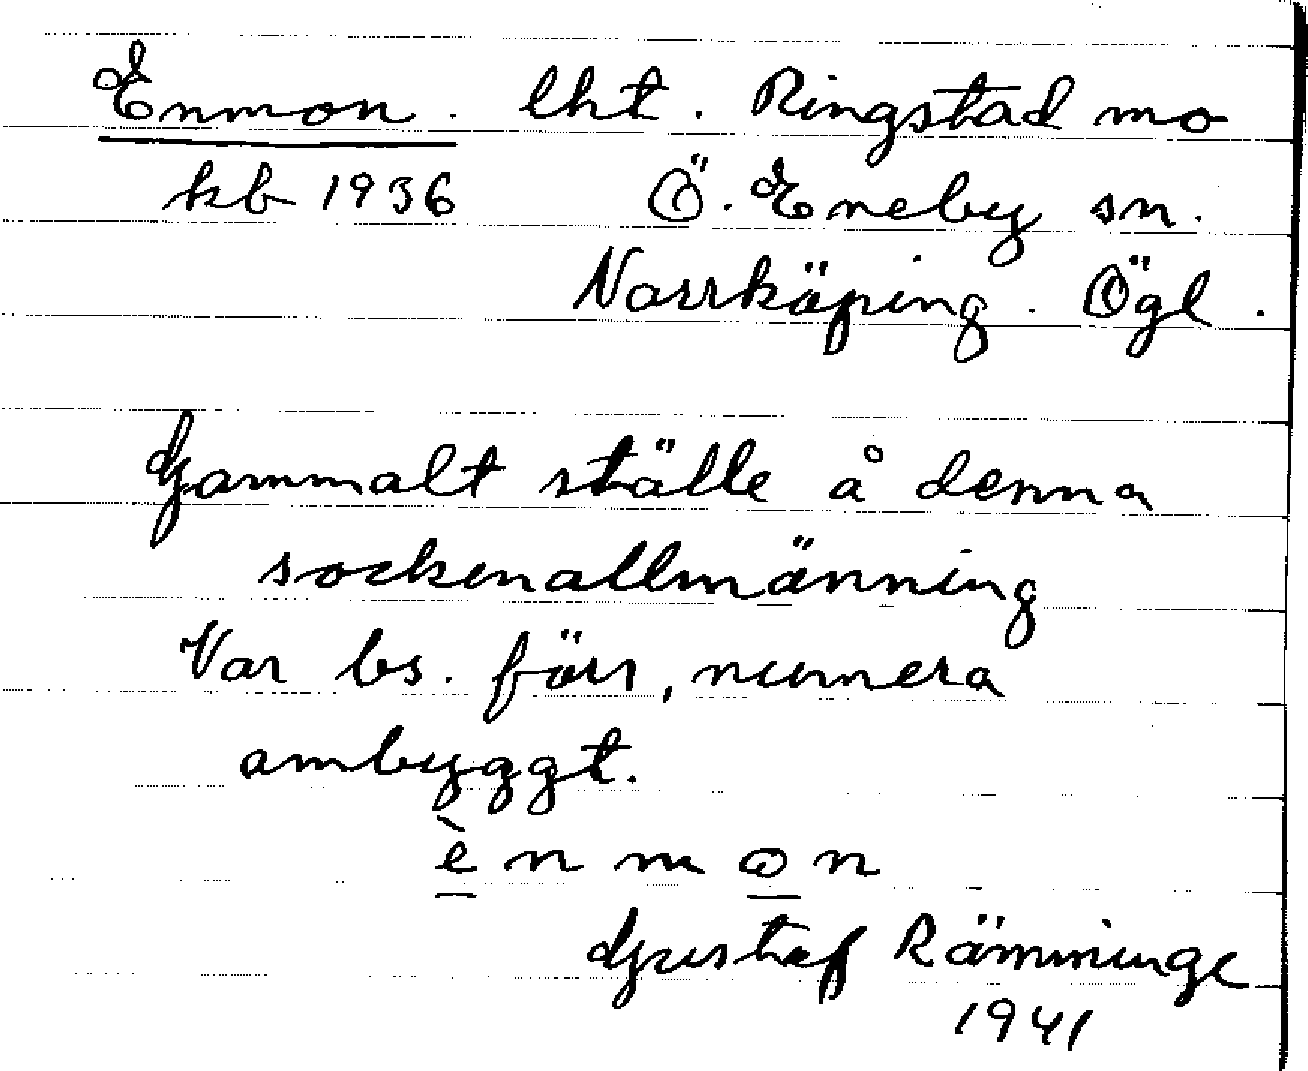 Enmon. lht. Ringstad mo
kb 1936 Ö. Eneby sn.
Norrköping. Ögl.
Gammalt ställe å denna
sockenallmänning
Var bs. förr, numera
ombyggt.
è n m o n
Gustaf Rämninge
1941